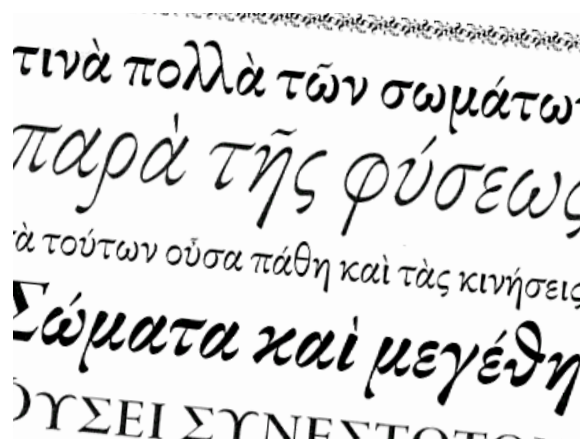 τινὰ πολλὰ τῶν σωμάτων
παρὰ τῆς φύσεως
τὰ τούτων οὖσα πάθη καὶ τὰς κινήσεις
Σώματα καὶ μεγέθη
ΦΥΣΕΙ ΣΥΝΕΣΤΩΤΩΝ